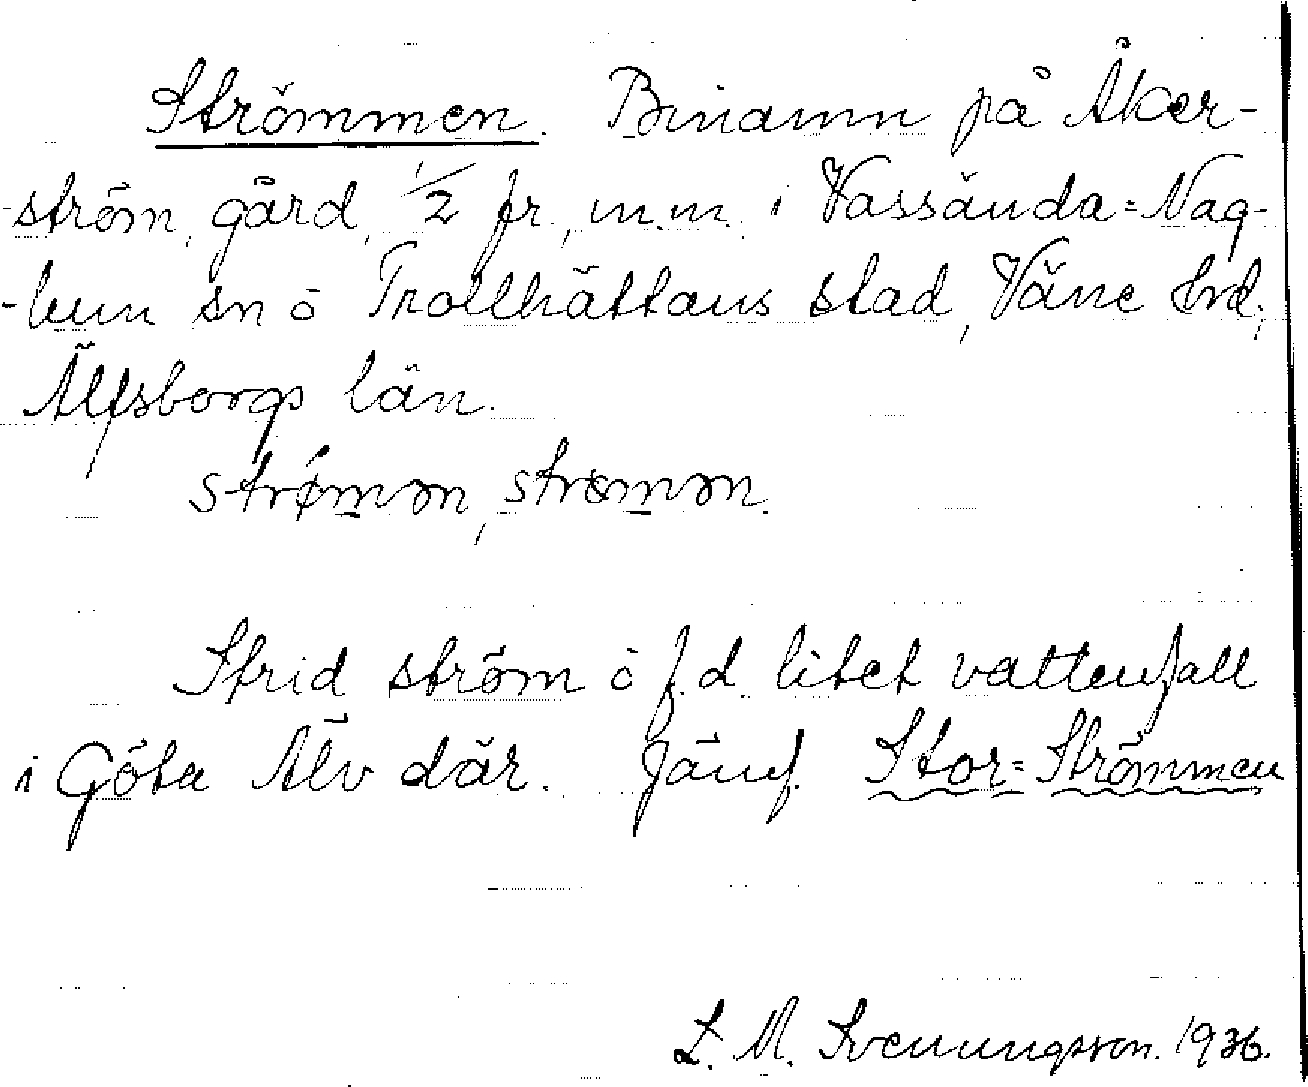 Strömmen. Binamn på Åker-
-ström, gård, 1/2 fr, m.m. i Vassända=Nag-
-lum sn o Trollhättans stad, Väne hrd,
Älfsborgs län.
strǿmən, strømən.
Strid ström o f.d. litet vattenfall
i Göta Älv där. Jämf. Stor=Strömmen
L. M. Svenungsson. 1936.